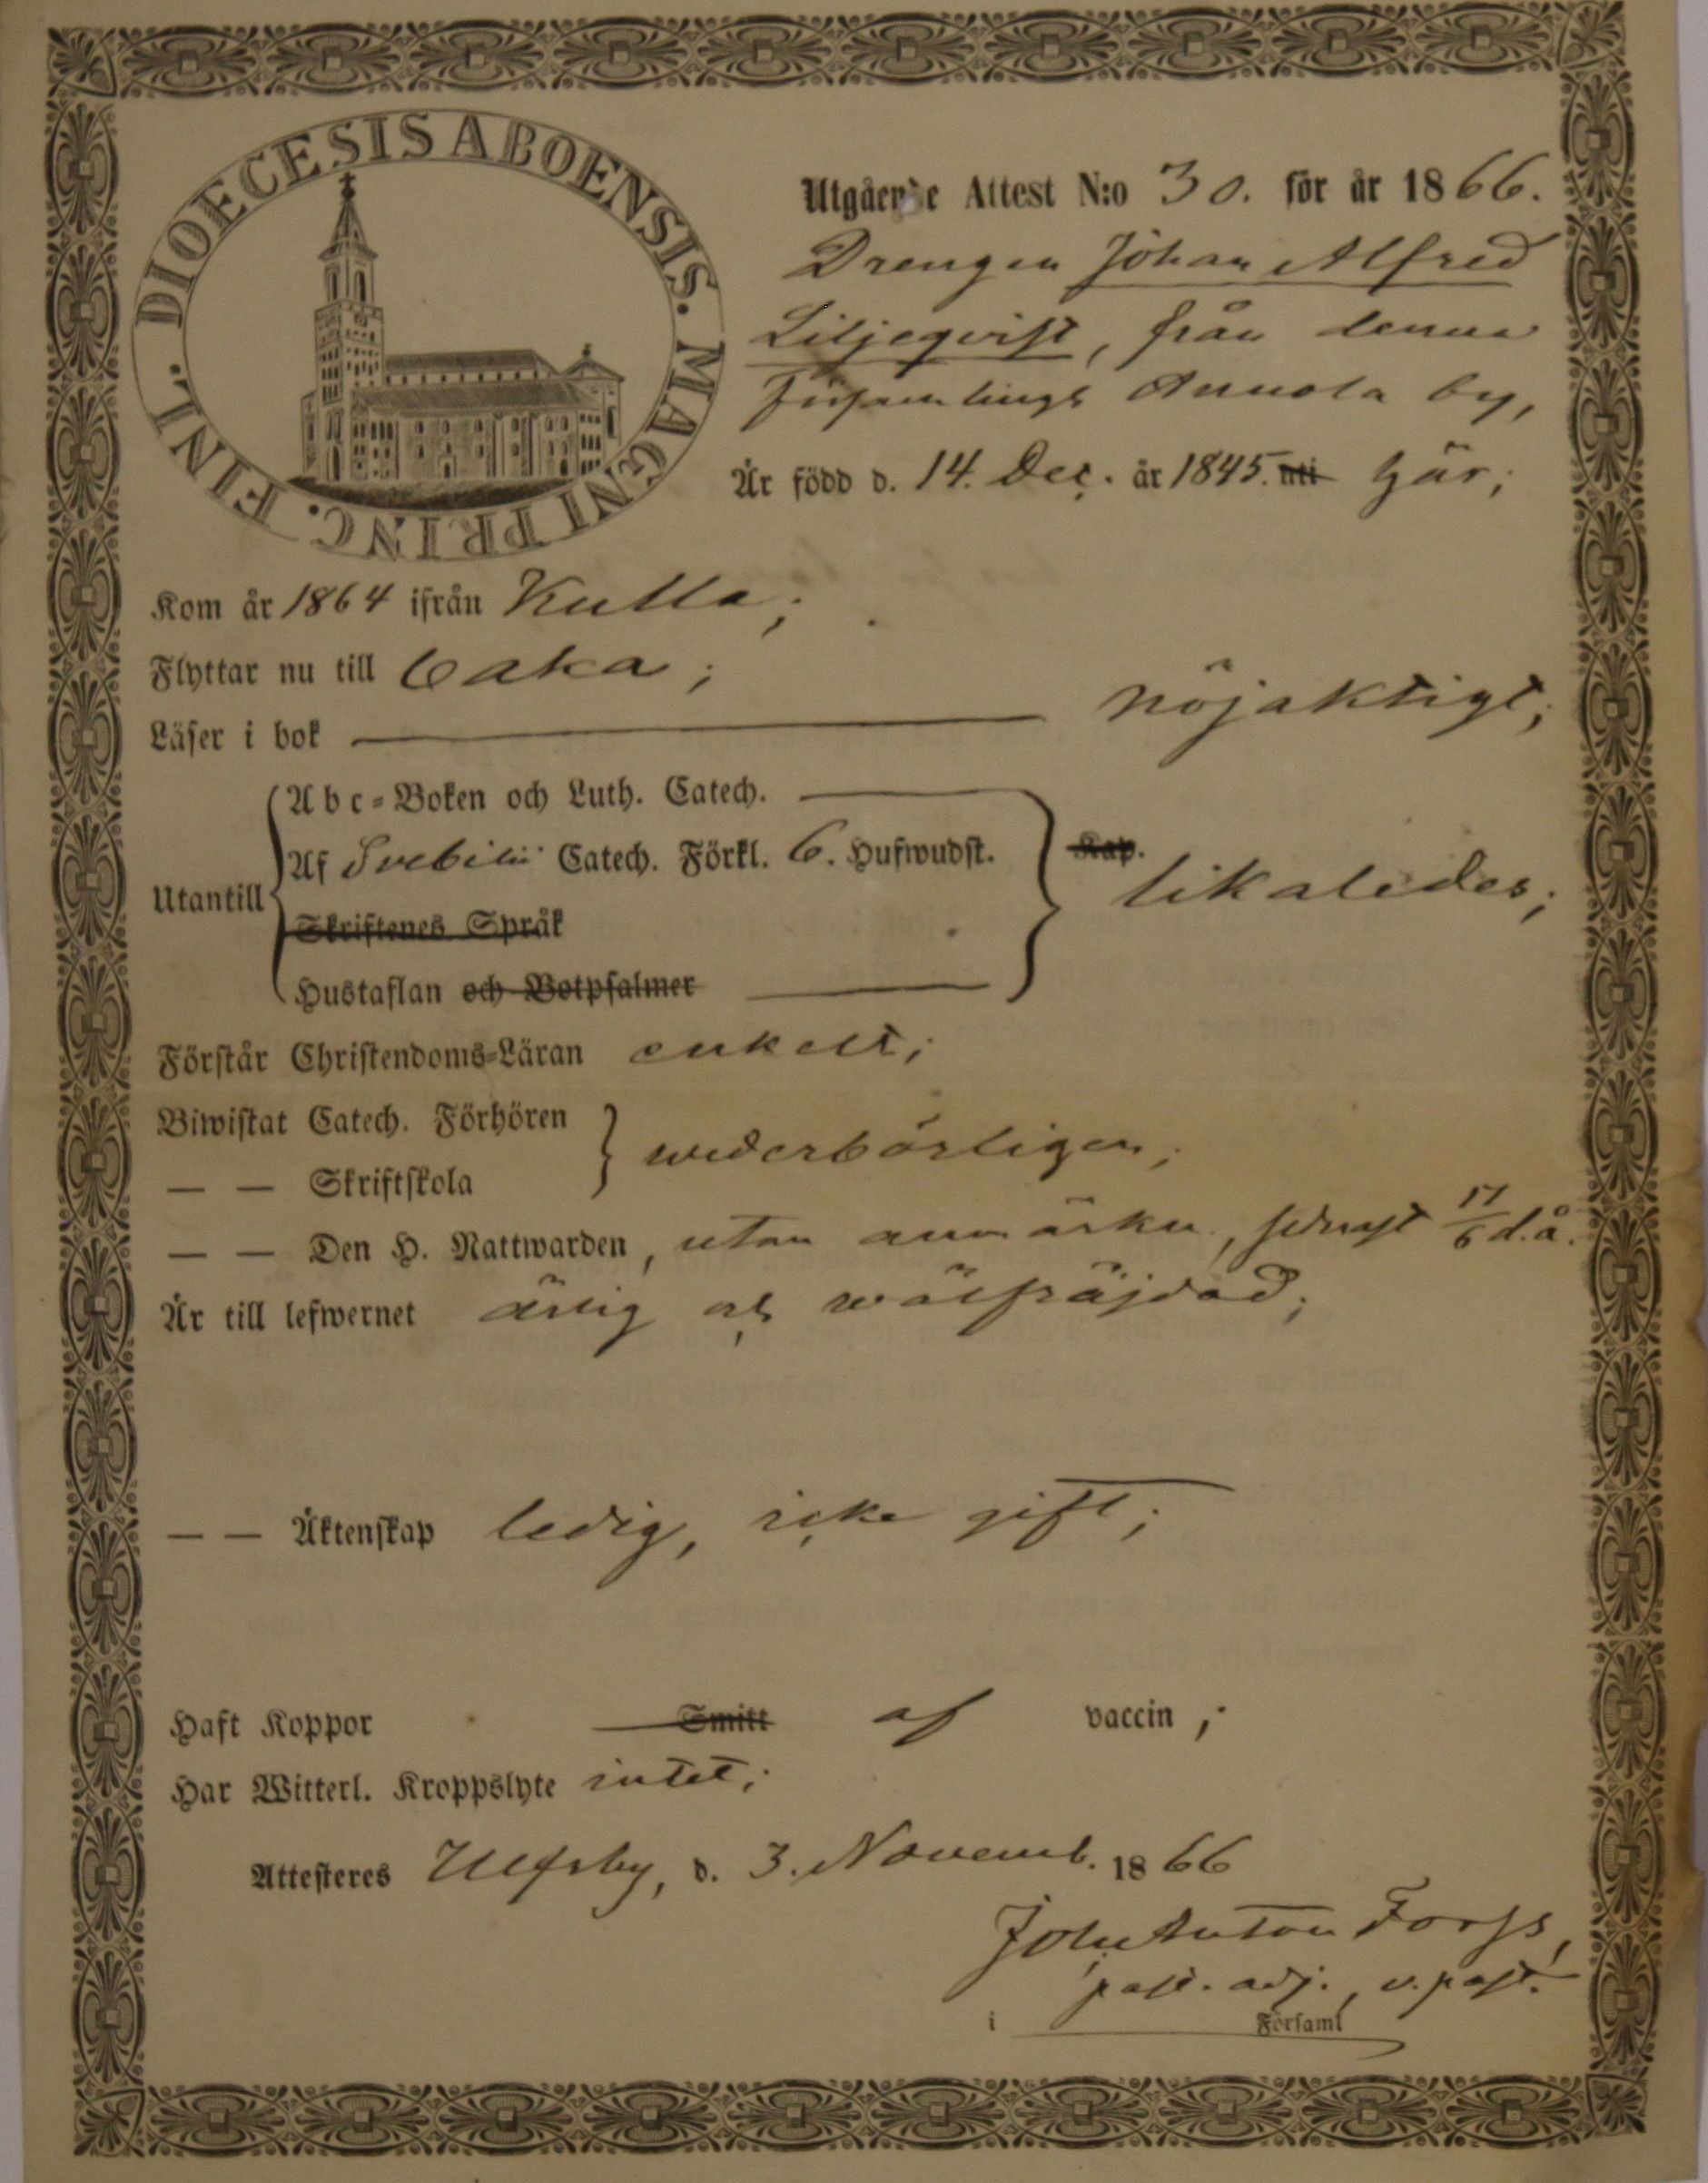 DIOECESIS ABOENSIS. MAGNI PRINC. FINL.
Utgående Attest N:o 30. för år 1866.
Drengen Johan Alfred
Liljeqvist, från denna
Församlings Annola by,
Är född d. 14. Dec. år 1845. uti här;
Kom år 1864 ifrån Kulla;
Flyttar nu till Eaka;
Läser i bok nöjaktigt;
Abc-Boken och Luth. Catech.
Af Svebilii Catech. Förkl. 6. Hufwudst. Kap.
Utantill likaledes;
Skriftenes Språk
Hustaflan och Botpsalmer
Förstår Christendoms-Läran enkelt;
Biwistat Catech. Förhören
wederbörligen;
— — Skriftskola
— — Den H. Nattwarden, utan anmärkn, sednast 17/6 d.å.
Är till lefwernet ärlig och wälfräjdad;
— — Äktenskap ledig, icke gift;
Haft Koppor Smitt af vaccin;
Har Witterl. Kroppslyte intet;
Attesteres Ulfsby, d. 3. Novemb. 1866
Joh. Anton Forss,
past. adj., v. past.
i Församl